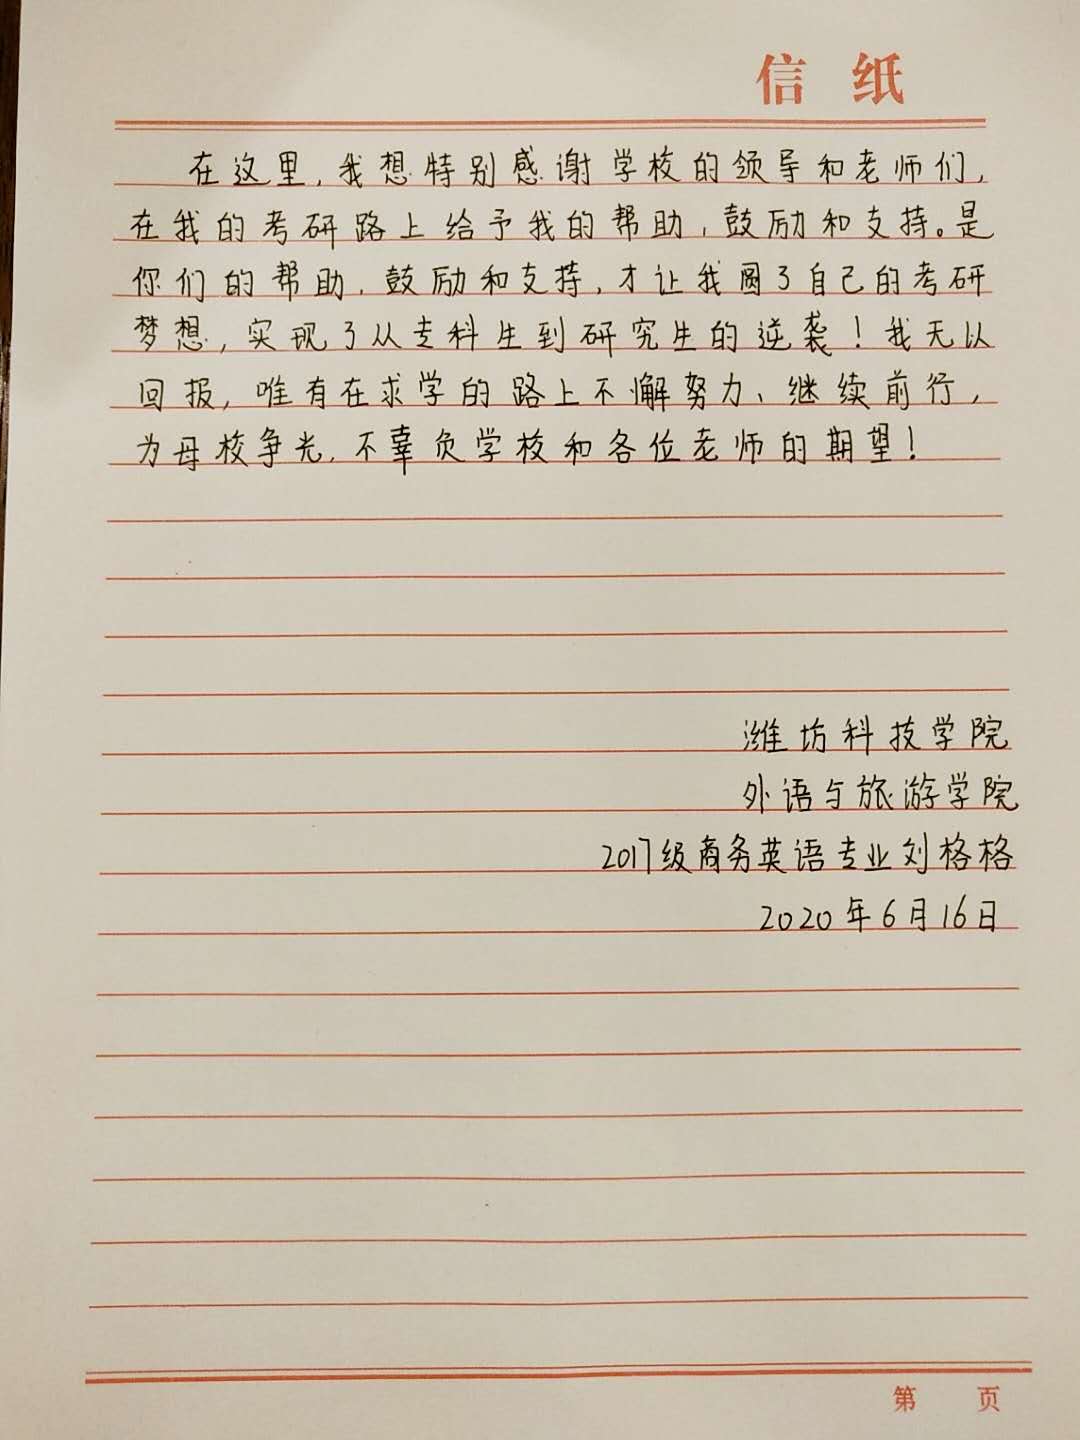 信 纸
在这里,我想特别感谢学校的领导和老师们,
在我的考研路上给予我的帮助,鼓励和支持。是
你们的帮助,鼓励和支持,才让我圆了自己的考研
梦想,实现了从专科生到研究生的逆袭!我无以
回报,唯有在求学的路上不懈努力、继续前行,
为母校争光,不辜负学校和各位老师的期望!
潍坊科技学院
外语与旅游学院
2017级商务英语专业刘格格
2020年6月16日
第 页